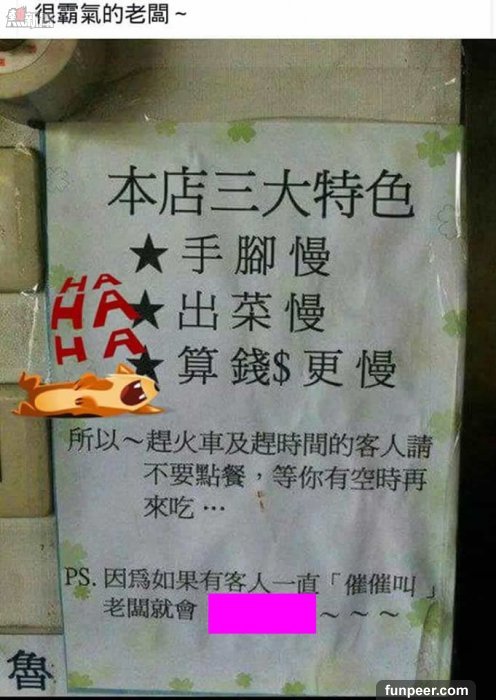 很霸氣的老闆~
本店三大特色
★手腳慢
★出菜慢
★算錢$更慢
HA
HA
HA
所以~趕火車及趕時間的客人請
不要點餐，等你有空時再
來吃…
PS. 因為如果有客人一直「催催叫」
老闆就會 ~~~~
魯
funpeer.com